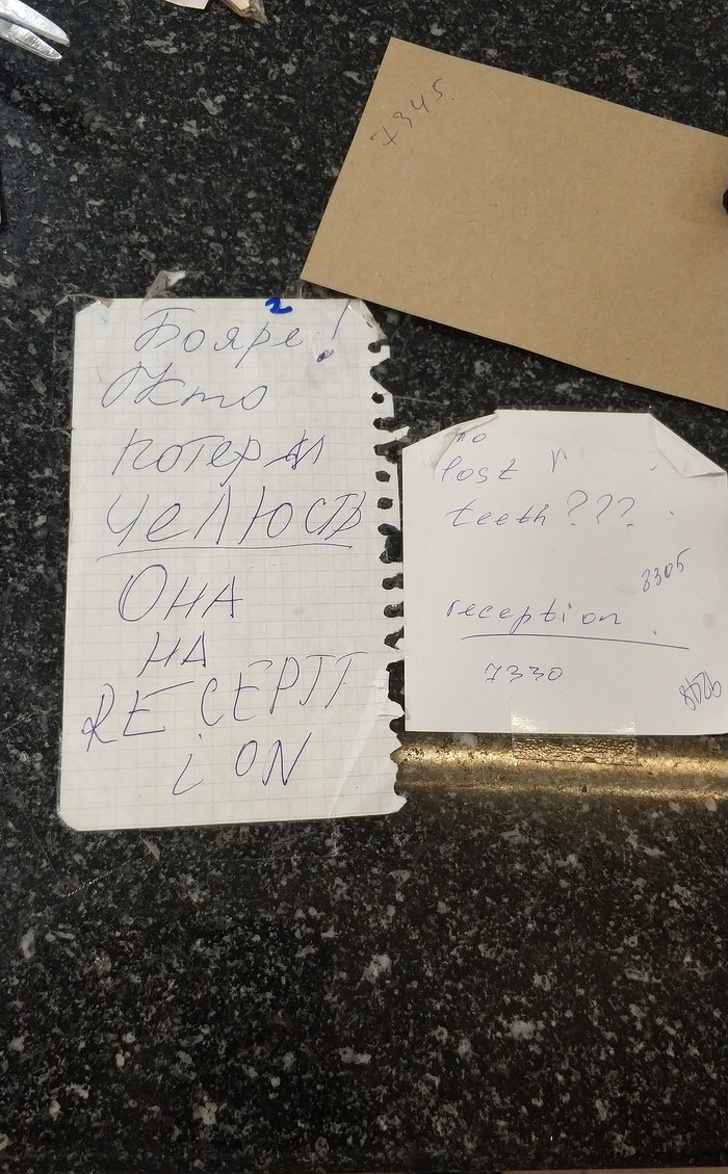 7345.
2
Бояре!
Кто
потерял
челюсть
ОНА
НА
RECEPTI
iON
no
Post
teeth???
8305
reception
7330